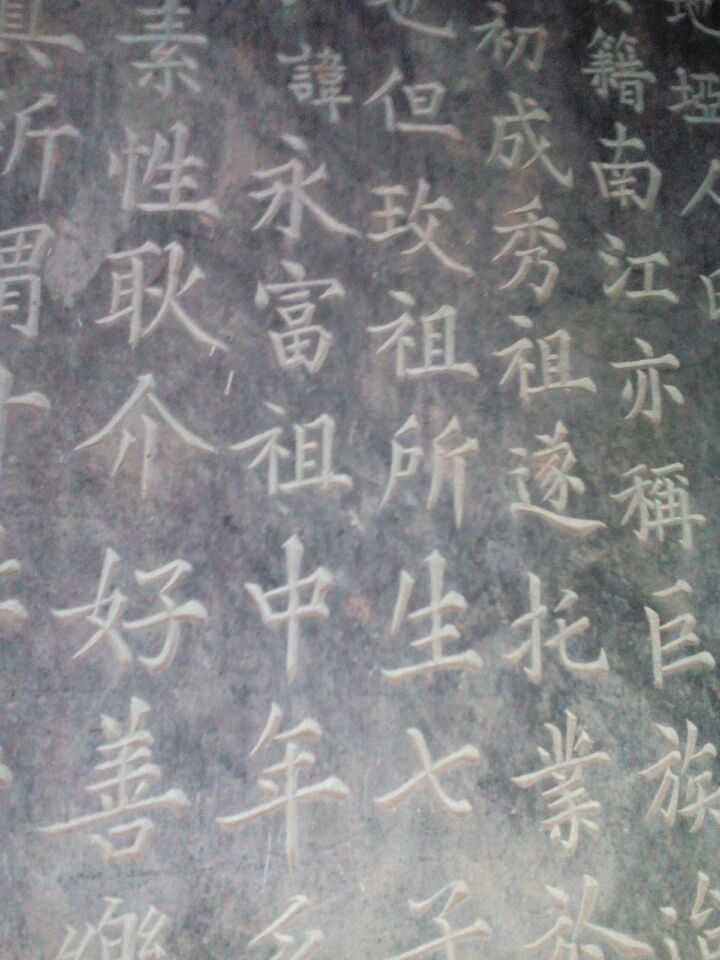 地埡
籍南江亦稱巨族
初成秀祖遂托業於
也但玫祖所生七子
諱永富祖中年
素性耿介好善樂
真所謂